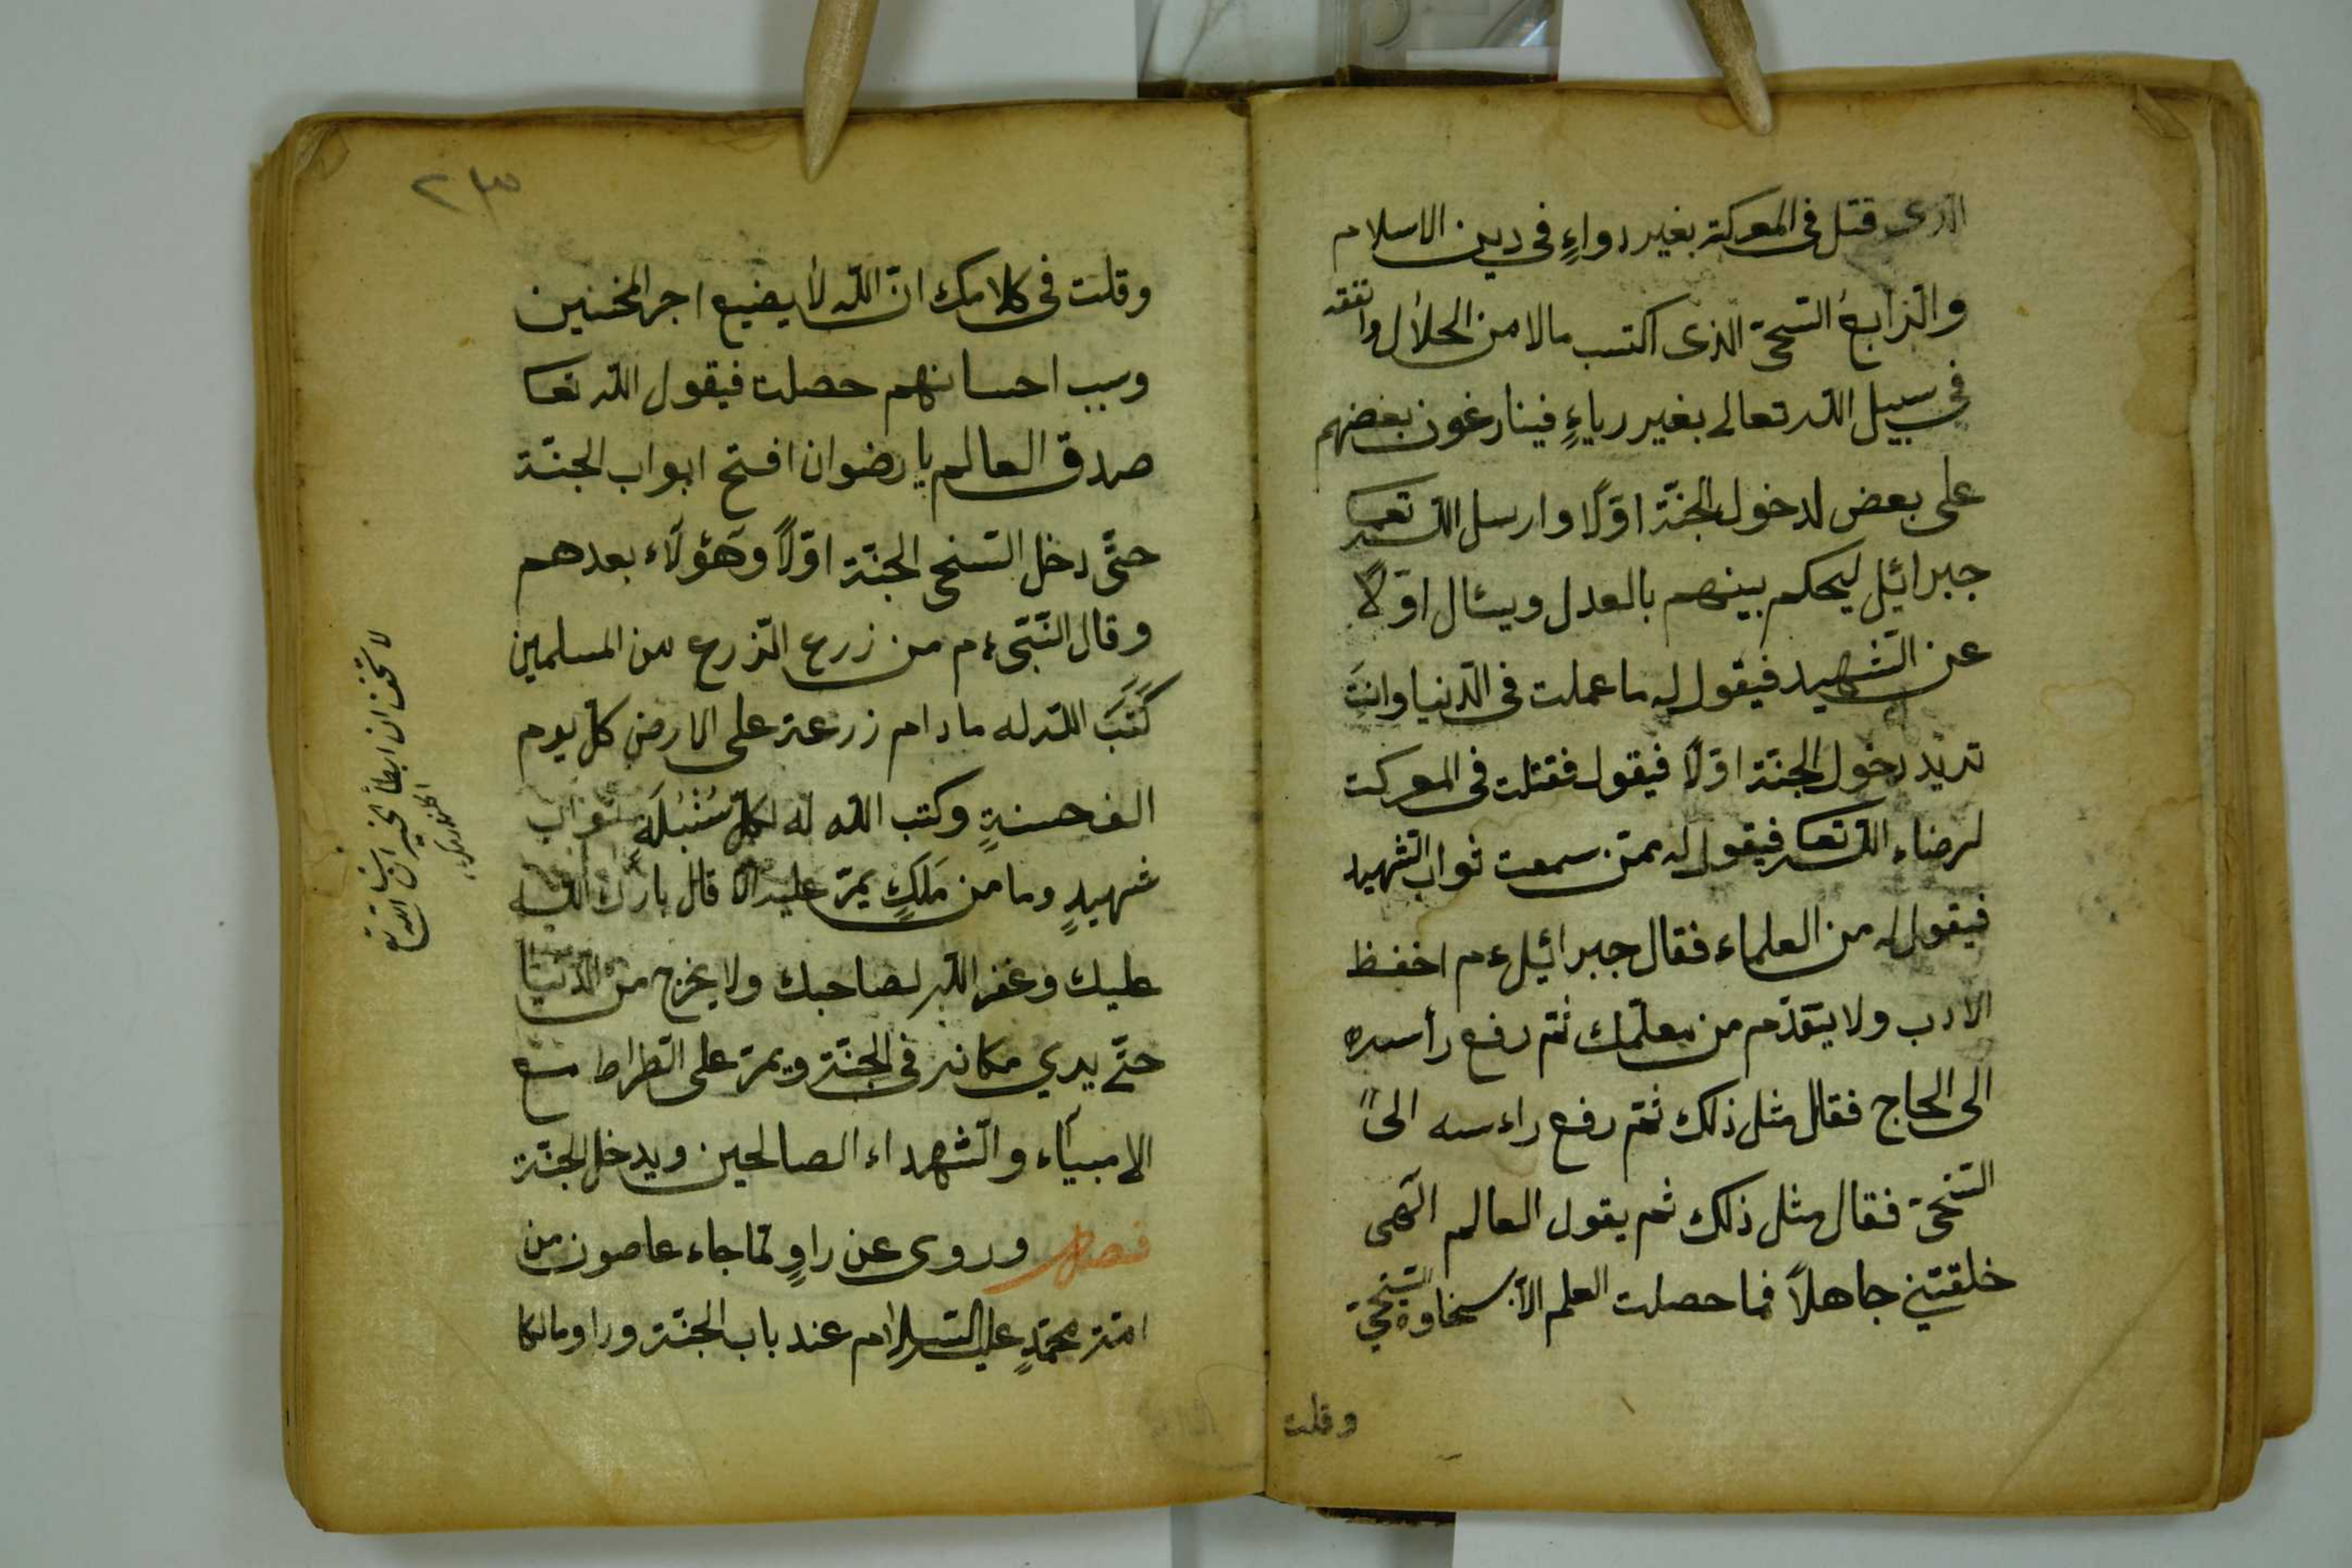 الذى قتل فى المعركة بغير رواءٍ فى دين الاسلام
والرّابع السّخىّ الذى اكتسب مالا من الحلال وانفقه
فى سبيل اللّه تعالى بغير رياءٍ فينارغون بعضهم
على بعض لدخول الجنّة اوّلًا وارسل اللّه تعا
جبرائيل ليحكم بينهم بالعدل ويسئال اوّلًا
عن الشّهيد فيقول له ما عملت فى الدّنيا وانتَ
تريد دخول الجنّة اوّلًا فيقول فقتلت فى المعركت
لرضاء اللّه تعا فيقول له ممّن سمعت ثواب الشّهيد
فيقول له من العلماء فقال جبرائيل ءم احفظ
الادب ولا يتقدّم من معلّمك ثمّ رفع رأسه
الى الحاج فقال مثل ذلك ثمّ رفع راءسه الى
السّخىّ فقال مثل ذلك ثم يقول العالم الٓهى
خلقتنى جاهلًا فما حصلت العلم الّا بسخاوة السّخىّ
وقلت
٢٣
وقلت فى كلامك انّ اللّه لا يضيع اجر المحسنين
وسبب احسانهم حصلت فيقول اللّه تعا
صدق العالم يا رضوان افتح ابواب الجنّة
حتّى دخل السّخى الجنّة اوّلًا وهٓؤلٓاء بعدهم
وقال النّبّى ءم من زرع الزّرع من المسلمين
كَتَبَ اللّه له ما دام زرعة على الارض كلّ يوم
الف حسنةٍ وكتب اللّه له لكلّ سُنْبُلَه ثواب
شهيدٍ وما من مَلَكٍ يمرّ عليه الّا قال بارك اللّه
عليك وغفر اللّه لصاحبك ولا يخرج من الدّنيا
حتّى يرى مكانه فى الجنّة ويمرّ على الصّراط مع
الانبيآء والشّهداء الصالحين ويدخل الجنّة
فصل وروى عن راوٍ لمّا جاء عاصون من
امّة محمّدٍ عليه السّلام عند باب الجنّة وراو مالكا
لا تخف ان ابطأ الخير ان شاء اللّه تع